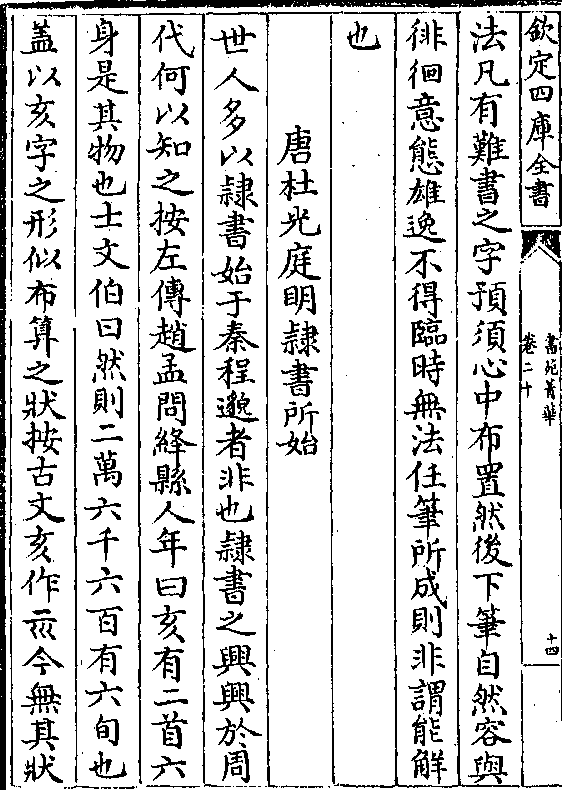 欽定四庫全書
書苑菁華
卷二十
十四
法凡有難書之字預須心中布置然後下筆自然容與
徘徊意態雄逸不得臨時無法任筆所成則非謂能解
也
唐杜光庭明隷書所始
世人多以隷書始于秦程邈者非也隷書之興興於周
代何以知之按左傳趙孟問絳縣人年曰亥有二首六
身是其物也士文伯曰然則二萬六千六百有六旬也
葢以亥字之形似布算之狀按古文亥作今無其狀